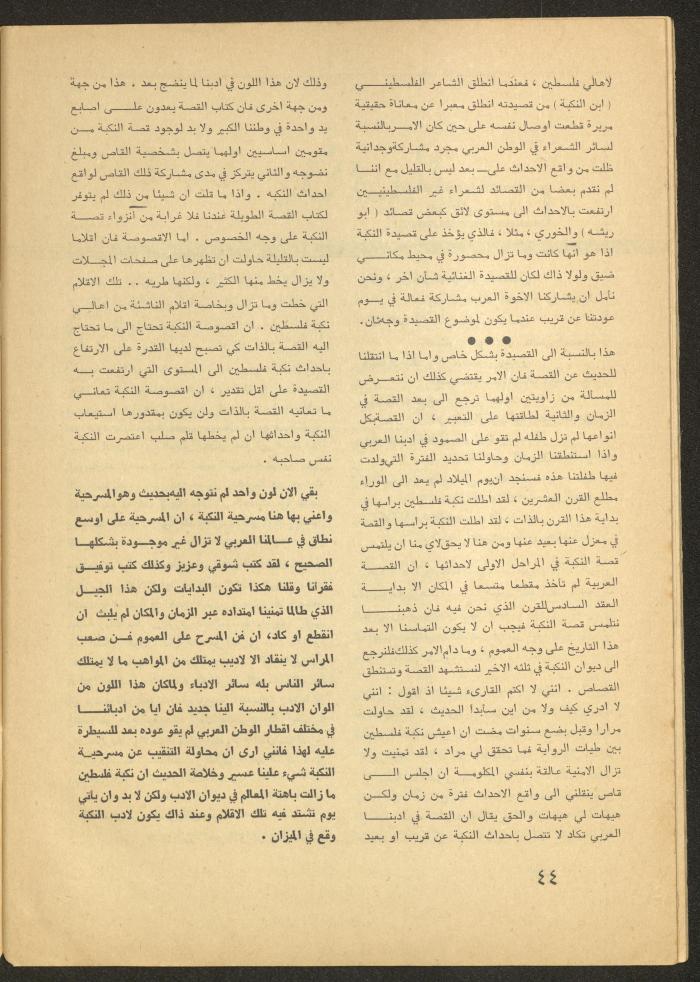 لاهالي فلسطين ، فعندما انطلق الشاعر الفلسطيني
( ابن النكبة ) من قصيدته انطلق معبرا عن معاناة حقيقية
مريرة قطعت اوصال نفسه على حين كان الامر بالنسبة
لسائر الشعراء في الوطن العربي مجرد مشاركة وجدانية
ظلت من واقع الاحداث على بعد ليس بالقليل مع اننا
لم نقدم بعضا من القصائد لشعراء غير الفلسطينيين
ارتفعت بالاحداث الى مستوى لائق كبعض قصائد ( ابو
ريشه ) والخوري ، مثلا ، فالذي يؤخذ على قصيدة النكبة
اذا هو انها كانت وما تزال محصورة في محيط مكاني
ضيق ولولا ذاك لكان للقصيدة الغنائية شأن اخر ، ونحن
نأمل ان يشاركنا الاخوة العرب مشاركة فعالة في يوم
عودتنا عن قريب عندما يكون لموضوع القصيدة وجهان.
● ● ●
هذا بالنسبة الى القصيدة بشكل خاص واما اذا ما انتقلنا
للحديث عن القصة فان الامر يقتضي كذلك ان نتعرض
للمسالة من زاويتين اولهما ترجع الى بعد القصة في
الزمان والثانية لطاقتها على التعبير ، ان القصة بكل
انواعها لم تزل طفله لم تقو على الصمود في ادبنا العربي
واذا استنطقنا الزمان وحاولنا تحديد الفترة التي ولدت
فيها طفلتنا هذه فسنجد ان يوم الميلاد لم يعد الى الوراء
مطلع القرن العشرين ، لقد اطلت نكبة فلسطين براسها في
بداية هذا القرن بالذات ، لقد اطلت النكبة براسها والقصة
في معزل عنها بعيد عنها ومن هنا لا يحق لاي منا ان يلتمس
قصة النكبة في المراحل الاولى لاحداثها ، ان القصة
العربية لم تأخذ مقطعا متسعا في المكان الا بداية
العقد السادس للقرن الذي نحن فيه فان ذهبنا
نتلمس قصة النكبة فيجب ان لا يكون التماسنا الا بعد
هذا التاريخ على وجه العموم ، وما دام الامر كذلك فلنرجع
الى ديوان النكبة في ثلثه الاخير لنستشهد القصة ونستنطق
القصاص . انني لا اكتم القارىء شيئا اذ اقول : انني
لا ادري كيف ولا من اين سابدا الحديث ، لقد حاولت
مرارا وقبل بضع سنوات مضت ان اعيش نكبة فلسطين
بين طيات الرواية فما تحقق لي مراد ، لقد تمنيت ولا
تزال الامنية عالقة بنفسي المكلومة ان اجلس الى
قاص ينقلني الى واقع الاحداث فترة من زمان ولكن
هيهات لي هيهات والحق يقال ان القصة في ادبنا
العربي تكاد لا تتصل باحداث النكبة عن قريب او بعيد
وذلك لان هذا اللون في ادبنا لما ينضج بعد . هذا من جهة
ومن جهة اخرى فان كتاب القصة يعدون على اصابع
يد واحدة في وطننا الكبير ولا بد لوجود قصة النكبة من
مقومين اساسيين اولهما يتصل بشخصية القاص ومبلغ
نضوجه والثاني يتركز في مدى مشاركة ذلك القاص لواقع
احداث النكبه . واذا ما قلت ان شيئا من ذلك لم يتوفر
لكتاب القصة الطويلة عندنا فلا غرابة من انزواء قصة
النكبة على وجه الخصوص . اما الاقصوصة فان اقلاما
ليست بالقليلة حاولت ان تظهرها على صفحات المجلات
ولا يزال يخط منها الكثير ، ولكنها طريه .. تلك الاقلام
التي خطت وما تزال وبخاصة اقلام الناشئة من اهالي
نكبة فلسطين . ان اقصوصة النكبة تحتاج الى ما تحتاج
اليه القصة بالذات كي تصبح لديها القدرة على الارتفاع
باحداث نكبة فلسطين الى المستوى التي ارتفعت به
القصيدة على اقل تقدير ، ان اقصوصة النكبة تعاني
ما تعانيه القصة بالذات ولن يكون بمقدورها استيعاب
النكبة واحداثها ان لم يخطها قلم صلب اعتصرت النكبة
نفس صاحبه .
بقي الان لون واحد لم نتوجه اليه بحديث وهو المسرحية
واعني بها هنا مسرحية النكبة ، ان المسرحية على اوسع
نطاق في عالمنا العربي لا تزال غير موجودة بشكلها
الصحيح ، لقد كتب شوقي وعزيز وكذلك كتب توفيق
فقرانا وقلنا هكذا تكون البدايات ولكن هذا الجيل
الذي طالما تمنينا امتداده عبر الزمان والمكان لم يلبث ان
انقطع او كاد، ان فن المسرح على العموم فن صعب
المراس لا ينقاد الا لاديب يمتلك من المواهب ما لا يمتلك
سائر الناس بله سائر الادباء ولما كان هذا اللون من
الوان الادب بالنسبة الينا جديد فان ايا من ادبائنا
في مختلف اقطار الوطن العربي لم يقو عوده بعد للسيطرة
عليه لهذا فانني ارى ان محاولة التنقيب عن مسرحية
النكبة شيء علينا عسير وخلاصة الحديث ان نكبة فلسطين
ما زالت باهتة المعالم في ديوان الادب ولكن لا بد وان يأتي
يوم تشتد فيه تلك الاقلام وعند ذاك يكون لادب النكبة
وقع في الميزان .
٤٤